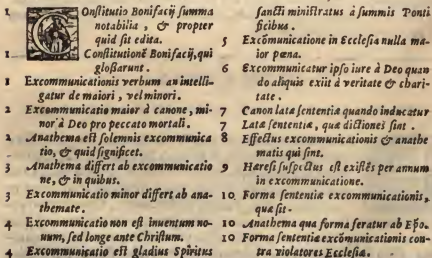 1 COnſtitutio Bonifacij ſumma
notabilia, & propter
quid ſit edita.
1 Conſtitutionē Bonifacij, qui
gloſſarunt.
1 Excommunicationis verbum an intelli-
gatur de maiori, vel minori.
2 Excommunicatio maior à canone, mi-
nor à Deo pro peccato mortali.
2 Anathema eſt ſolemnis excommunica
tio, & quid ſignificet.
3 Anathema differt ab excommunicatio
ne, & in quibus.
3 Excommunicatio minor differt ab ana-
themate.
4 Excommunicatio non eſt inuentum no-
uum, ſed longe ante Chriſtum.
4 Excommunicatio eſt gladius Spiritus
ſancti miniſtratus à ſummis Ponti
ficibus.
5 Excōmunicatione in Eccleſia nulla ma-
ior pœna.
6 Excommunicatur ipſo iure à Deo quan
do aliquis exiit à veritate & chari-
tate.
7 Canon latæ ſententiæ quando inducatur
7 Latæ ſententiæ, quæ dictiones ſint.
8 Effectus excommunicationis & anathe
matis qui ſint.
9 Hæreſi ſuſpectus eſt exiſtēs per annum
in excommunicatione.
10 Forma ſententiæ excommunicationis,
quæ ſit.
10 Anathema qua forma feratur ab Epō.
10 Forma ſententiæ excōmunicationis con-
tra violatores Eccleſiæ.